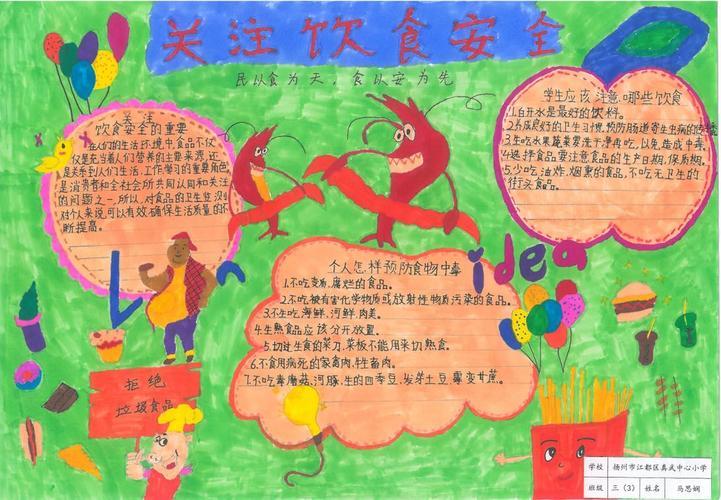 关注饮食安全
民以食为天，食以安为先
关注
饮食安全的重要
在人们的生活环境中，食品不仅
仅是充当着人们营养的主要来源，还
是关系到人们生活、工作、学习的重要角色，
是消费者和全社会所共同认同和关注
的问题之一，所以，对食品的卫生监
对个人来说，可以有效确保生活质量的不
断提高。
学生应该注意哪些饮食
1.白开水是最好的饮料。
2.养成良好的卫生习惯，预防肠道寄生虫病的传播
3.生吃水果蔬菜要洗干净再吃，以免造成中毒。
4.选择食品要注意食品的生产日期，保质期。
5.少吃油炸、烟熏的食品，不吃无卫生的
街头食品。
idea
个人怎样预防食物中毒
1.不吃变质、腐烂的食品。
2.不吃被有害化学物质或放射性物质污染的食品。
3.不生吃海鲜、河鲜、肉类。
4.生熟食品应该分开放置。
5.切过生食的菜刀、菜板不能用来切熟食。
6.不食用病死的家禽肉、牲畜肉。
7.不吃毒蘑菇、河豚、生的四季豆、发芽土豆、霉变甘蔗。
拒绝
垃圾食品
学校 扬州市江都区真武中心小学
班级 三（3） 姓名 马思娴